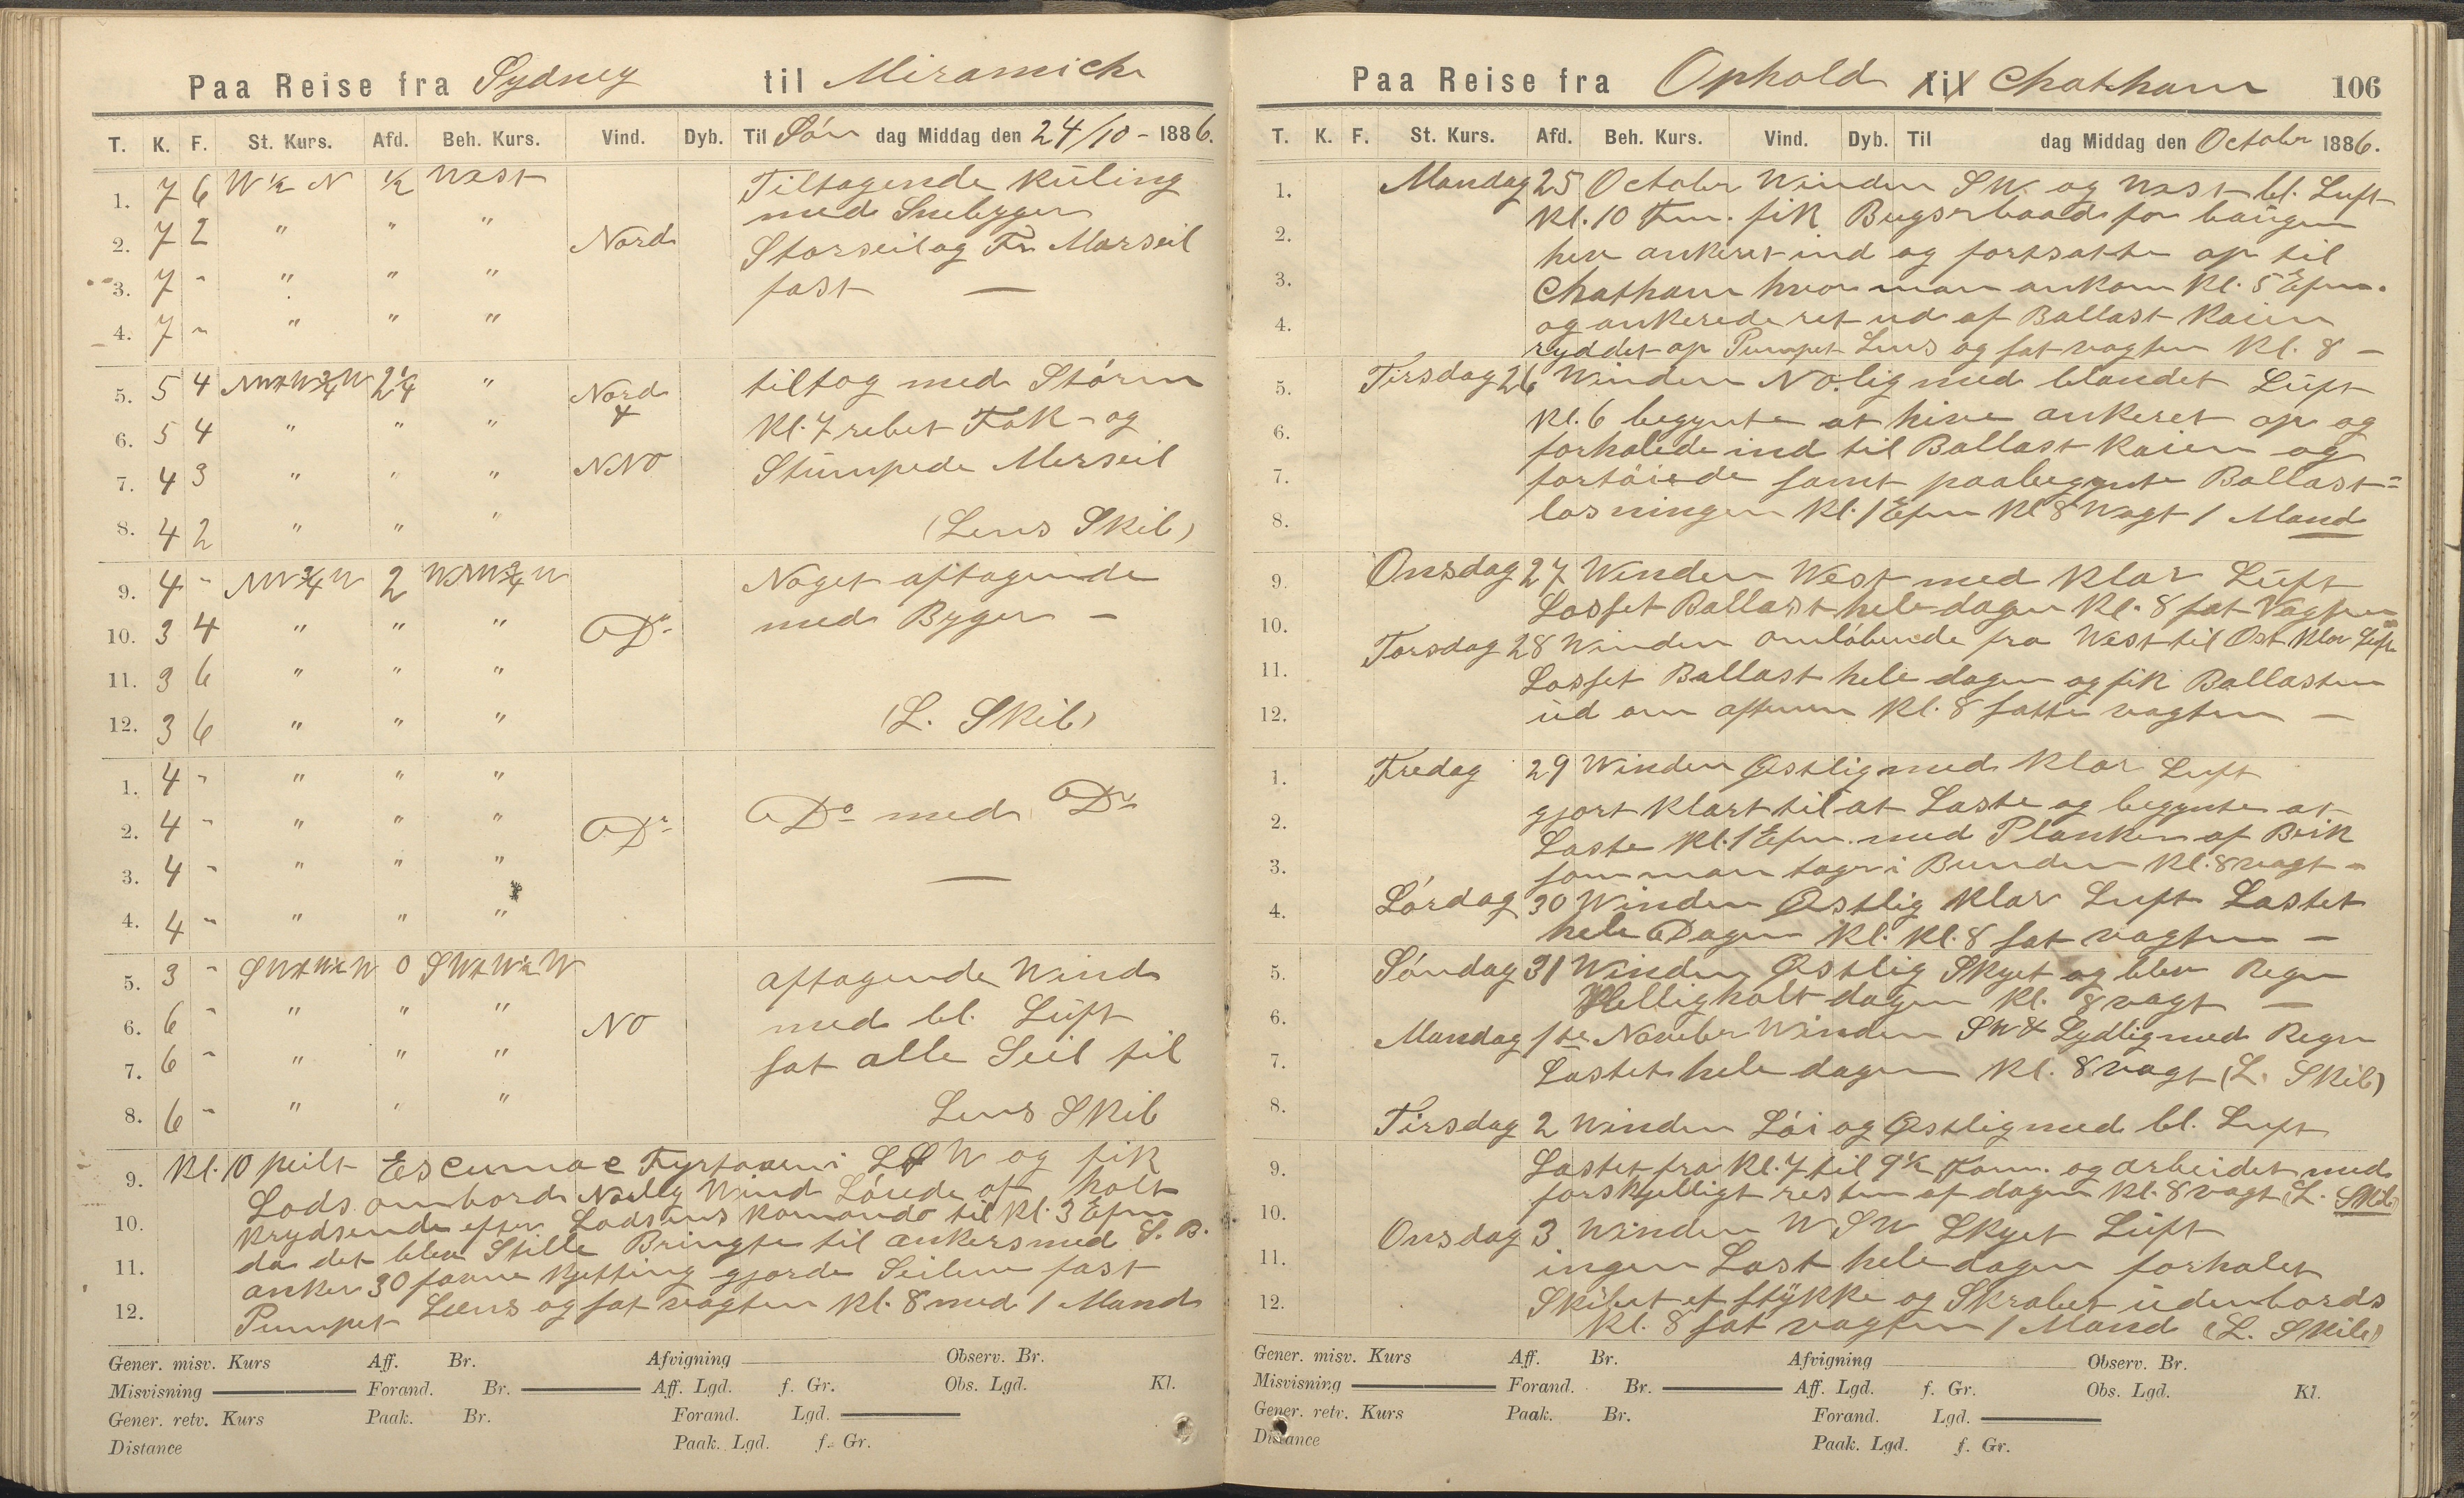 Paa Reise fra Sydney til Miramichi
T. K. F. St. Kurs. Afd. Beh. Kurs. Vind. Dyb. Til Søn dag Middag den 24/10 - 1886.
1. 7 6 W 1/2 N 1/2 West Tiltagende Kuling
med Snebyger
2. 7 2 " " " Nord Storseil og Fr. Marseil
3. 7 - " " " fast —
4. 7 - " " "
5. 5 4 NWtW 3/4 W 2 1/4 " Nord tiltog med Storm
6. 5 4 " " " & Kl. 7 rebet Fok - og
7. 4 3 " " " NNO Stumpede Merseil
8. 4 2 " " " (Lens Skib)
9. 4 - NW 3/4 W 2 WNW 3/4 W Noget aftagende
10. 3 4 " " " Do med Byger -
11. 3 6 " " "
12. 3 6 " " " (L. Skib)
1. 4 - " " "
2. 4 - " " " Do Do med Do
3. 4 - " " " —
4. 4 - " " "
5. 3 - SWtW 1/2 W 0 SWtW 1/2 W aftagende Wind
6. 6 - " " " NO med bl. Luft
7. 6 - " " " sat alle Seil til
8. 6 - " " " Lens Skib
9. Kl. 10 peilt Escumac Fyrtaarn i og fik
Lods ombord Nordlg Wind Løvede op holt
10. krydsende efter Lodsens Komando til Kl. 3 Efm
da det blev Stille Bringte til ankers med S. B.
11. anker 30 favne Kjetting gjorde Seilene fast
12. Pumpet Læns og sat vagten Kl. 8 med 1 Mand
Gener. misv. Kurs Aff. Br. Afvigning Observ. Br.
Misvisning Forand. Br. Aff. Lgd. f. Gr. Obs. Lgd. Kl.
Gener. retv. Kurs Paak. Br. Forand. Lgd.
Distance Paak. Lgd. f. Gr.
Paa Reise fra Ophold til Chatham 106
T. K. F. St. Kurs. Afd. Beh. Kurs. Vind. Dyb. Til dag Middag den October 1886.
1. Mandag 25 October Winden SW. og West bl. Luft
Kl. 10 Fm. fik Bugserbaad for baugen
2. hev ankeret ind og fortsatte op til
3. Chatham hvor man ankom Kl. 5 Efm.
4. og ankerede ret ud af Ballast Kaien
ryddet op Pumpet Lens og sat vagten Kl. 8 -
5. Tirsdag 26 Winden NO.lig med blandet Luft
6. Kl. 6 begynte at hive ankeret op og
forhalede ind til Ballast Kaien og
7. fortøiede samt paabegynte Ballast=
8. losningen Kl. 1 Efm Kl 8 Wagt 1 Mand
9. Onsdag 27 Winden West med Klar Luft
Losset Ballast hele dagen Kl. 8 sat Vagten
10. Torsdag 28 Winden omløbende fra West til Ost Klar Luft
11. Losset Ballast hele dagen og fik Ballasten
12. ud om aftenen Kl. 8 satte vagten —
1. Fredag 29 Winden Østlig med Klar Luft
gjort Klart til at Laste og begynte at
2. Laste Kl. 1 Efm. med Planker af Birk
3. som man tager i Bunden Kl. 8 vagt -
4. Lørdag 30 Winden Østlig Klar Luft Lastet
hele Dagen Kl. Kl. 8 sat vagten —
5. Søndag 31 Winden Østlig Skyet og blev Regn
6. Helligholt dagen Kl. 8 vagt —
Mandag 1ste November Winden SW & Sydlig med Regn
7. Lastet hele dagen Kl. 8 vagt (L. Skib)
8. Tirsdag 2 Winden Løi og Østlig med bl. Luft
9. Lastet fra Kl. 7 til 9 1/2 Form. og arbeidet med
10. forskjelligt resten af dagen Kl. 8 vagt (L. Skib)
Onsdag 3 Winden WSW Skyet Luft
11. ingen Last hele dagen forhalet
12. Skibet et stykke og Skrabet udenbords
Kl. 8 sat vagten 1 Mand (L. Skib)
Gener. misv. Kurs Aff. Br. Afvigning Observ. Br.
Misvisning Forand. Br. Aff. Lgd. f. Gr. Obs. Lgd. Kl.
Gener. retv. Kurs Paak. Br. Forand. Lgd.
Distance Paak. Lgd. f. Gr.